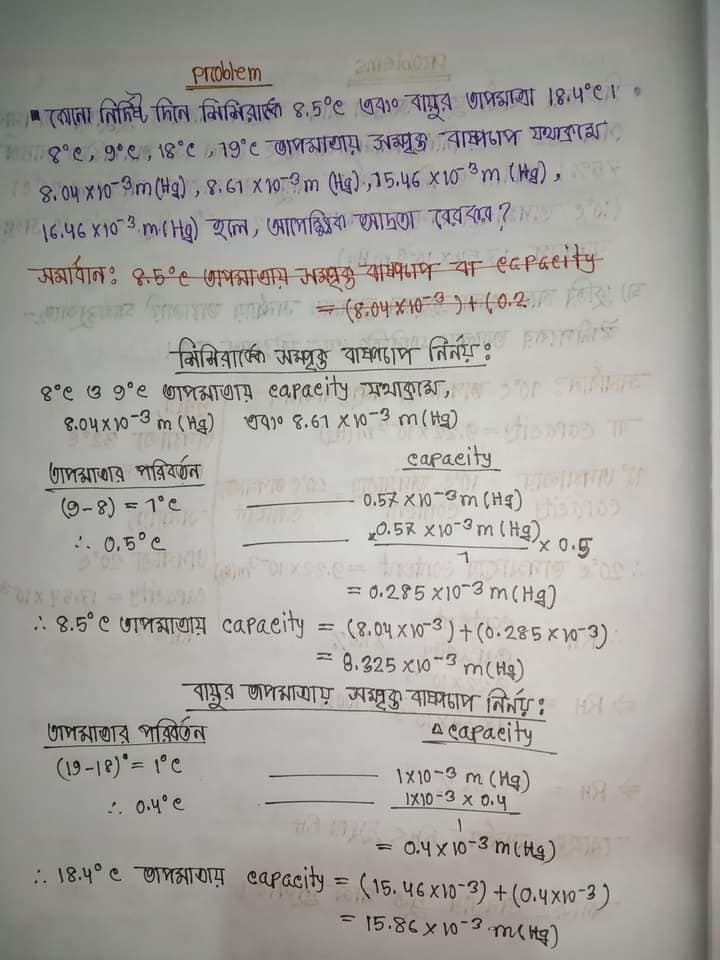 Problem
কোনো নির্দিষ্ট দিনে শিশিরাঙ্ক 8.5°c এবং বায়ুর তাপমাত্রা 18.4°c।
8°c, 9°c, 18°c, 19°c তাপমাত্রায় সম্পৃক্ত বাষ্পচাপ যথাক্রমে
8.04 × 10⁻³ m (Hg), 8.61 × 10⁻³ m (Hg), 15.46 × 10⁻³ m (Hg),
16.46 × 10⁻³ m (Hg) হলে, আপেক্ষিক আদ্রতা বেরকর?
সমাধান: 8.5°c তাপমাত্রায় সম্পৃক্ত বাষ্পচাপ বা capacity
= (8.04 × 10⁻³) + (0.2
শিশিরাঙ্কে সম্পৃক্ত বাষ্পচাপ নির্নয়:
8°c ও 9°c তাপমাত্রায় capacity যথাক্রমে,
8.04 × 10⁻³ m (Hg) এবং 8.61 × 10⁻³ m (Hg)
তাপমাত্রার পরিবর্তন capacity
(9-8) = 1°c 0.57 × 10⁻³ m (Hg)
∴ 0.5°c 0.57 × 10⁻³ m (Hg) × 0.5
1
= 0.285 × 10⁻³ m (Hg)
∴ 8.5°c তাপমাত্রায় capacity = (8.04 × 10⁻³) + (0.285 × 10⁻³)
= 8.325 × 10⁻³ m (Hg)
বায়ুর তাপমাত্রায় সম্পৃক্ত বাষ্পচাপ নির্নয়:
তাপমাত্রার পরিবর্তন ∆capacity
(19-18)° = 1°c 1 × 10⁻³ m (Hg)
∴ 0.4°c 1 × 10⁻³ × 0.4
1
= 0.4 × 10⁻³ m (Hg)
∴ 18.4°c তাপমাত্রায় capacity = (15.46 × 10⁻³) + (0.4 × 10⁻³)
= 15.86 × 10⁻³ m (Hg)